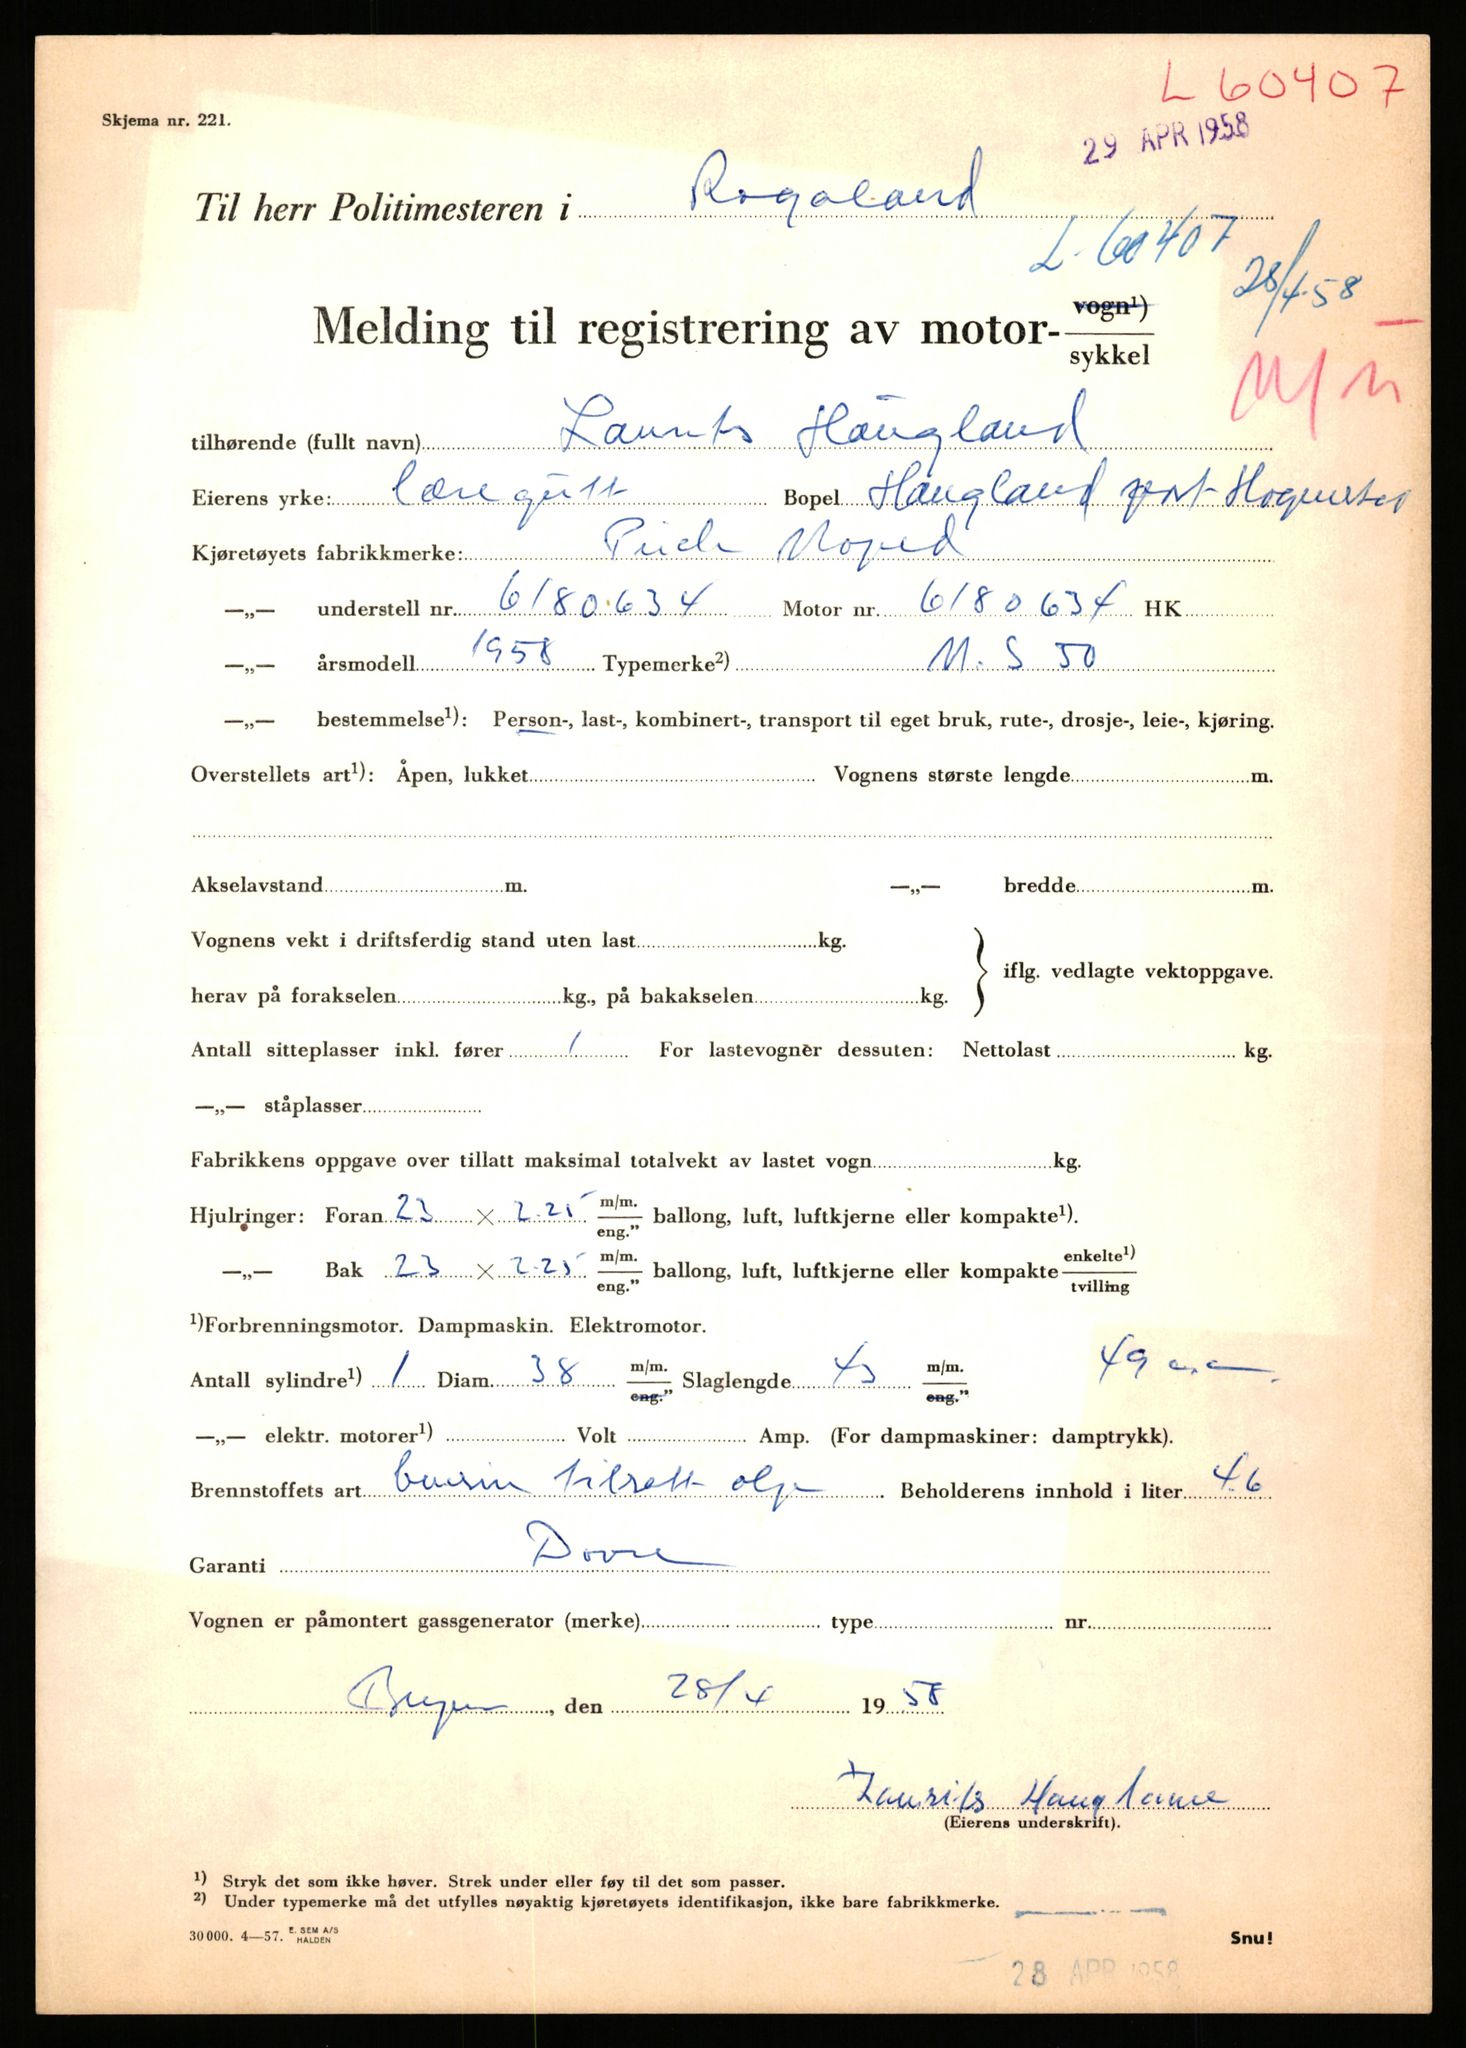 L 60407
Skjema nr. 221.
29 APR 1958
Til herr Politimesteren i Rogaland
L-60407
28/4-58
vogn¹)
Melding til registrering av motor-
sykkel
M/n
tilhørende (fullt navn) Laurits Haugland
Eierens yrke: læregutt Bopel Haugland post Hogneset
Kjøretøyets fabrikkmerke: Puch Moped
—„— understell nr. 6180634 Motor nr. 6180634 HK
—„— årsmodell 1958 Typemerke²) M.S 50
—„— bestemmelse¹): Person-, last-, kombinert-, transport til eget bruk, rute-, drosje-, leie-, kjøring.
Overstellets art¹): Åpen, lukket Vognens største lengde m.
Akselavstand m. —„— bredde m.
Vognens vekt i driftsferdig stand uten last kg.
iflg. vedlagte vektoppgave.
herav på forakselen kg., på bakakselen kg.
Antall sitteplasser inkl. fører 1 For lastevogner dessuten: Nettolast kg.
—„— ståplasser
Fabrikkens oppgave over tillatt maksimal totalvekt av lastet vogn kg.
Hjulringer: Foran 23 × 2.25 m/m. eng." ballong, luft, luftkjerne eller kompakte¹).
—„— Bak 23 × 2.25 m/m. eng." ballong, luft, luftkjerne eller kompakte enkelte¹) tvilling
¹)Forbrenningsmotor. Dampmaskin. Elektromotor.
Antall sylindre¹) 1 Diam. 38 m/m. eng." Slaglengde 43 m/m. eng." 49
—„— elektr. motorer¹) Volt Amp. (For dampmaskiner: damptrykk).
Brennstoffets art bensin tilsatt olje Beholderens innhold i liter 4.6
Garanti Dovre
Vognen er påmontert gassgenerator (merke) type nr.
, den 28/4 1958
x Laurits Haugland
(Eierens underskrift).
¹) Stryk det som ikke høver. Strek under eller føy til det som passer.
²) Under typemerke må det utfylles nøyaktig kjøretøyets identifikasjon, ikke bare fabrikkmerke.
30 000. 4—57. E. SEM A/S HALDEN
Snu!
28 APR 1958